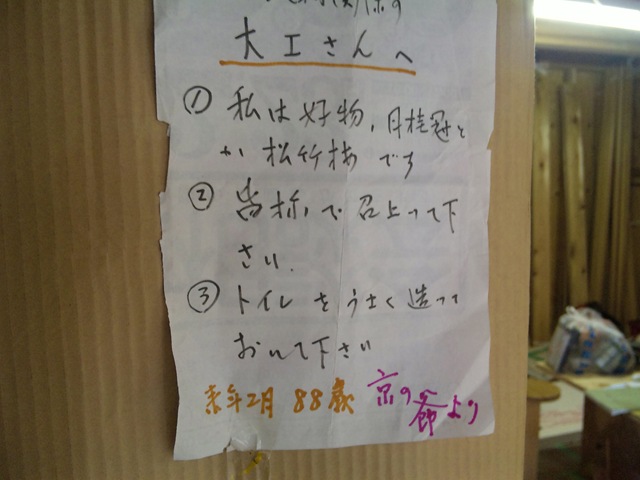 大工さんへ
① 私は好物、月桂冠と
か 松竹梅 です
② 皆様で召上って下
さい.
③ トイレをうまく造って
おいて下さい
来年2月 88歳 京の爺より